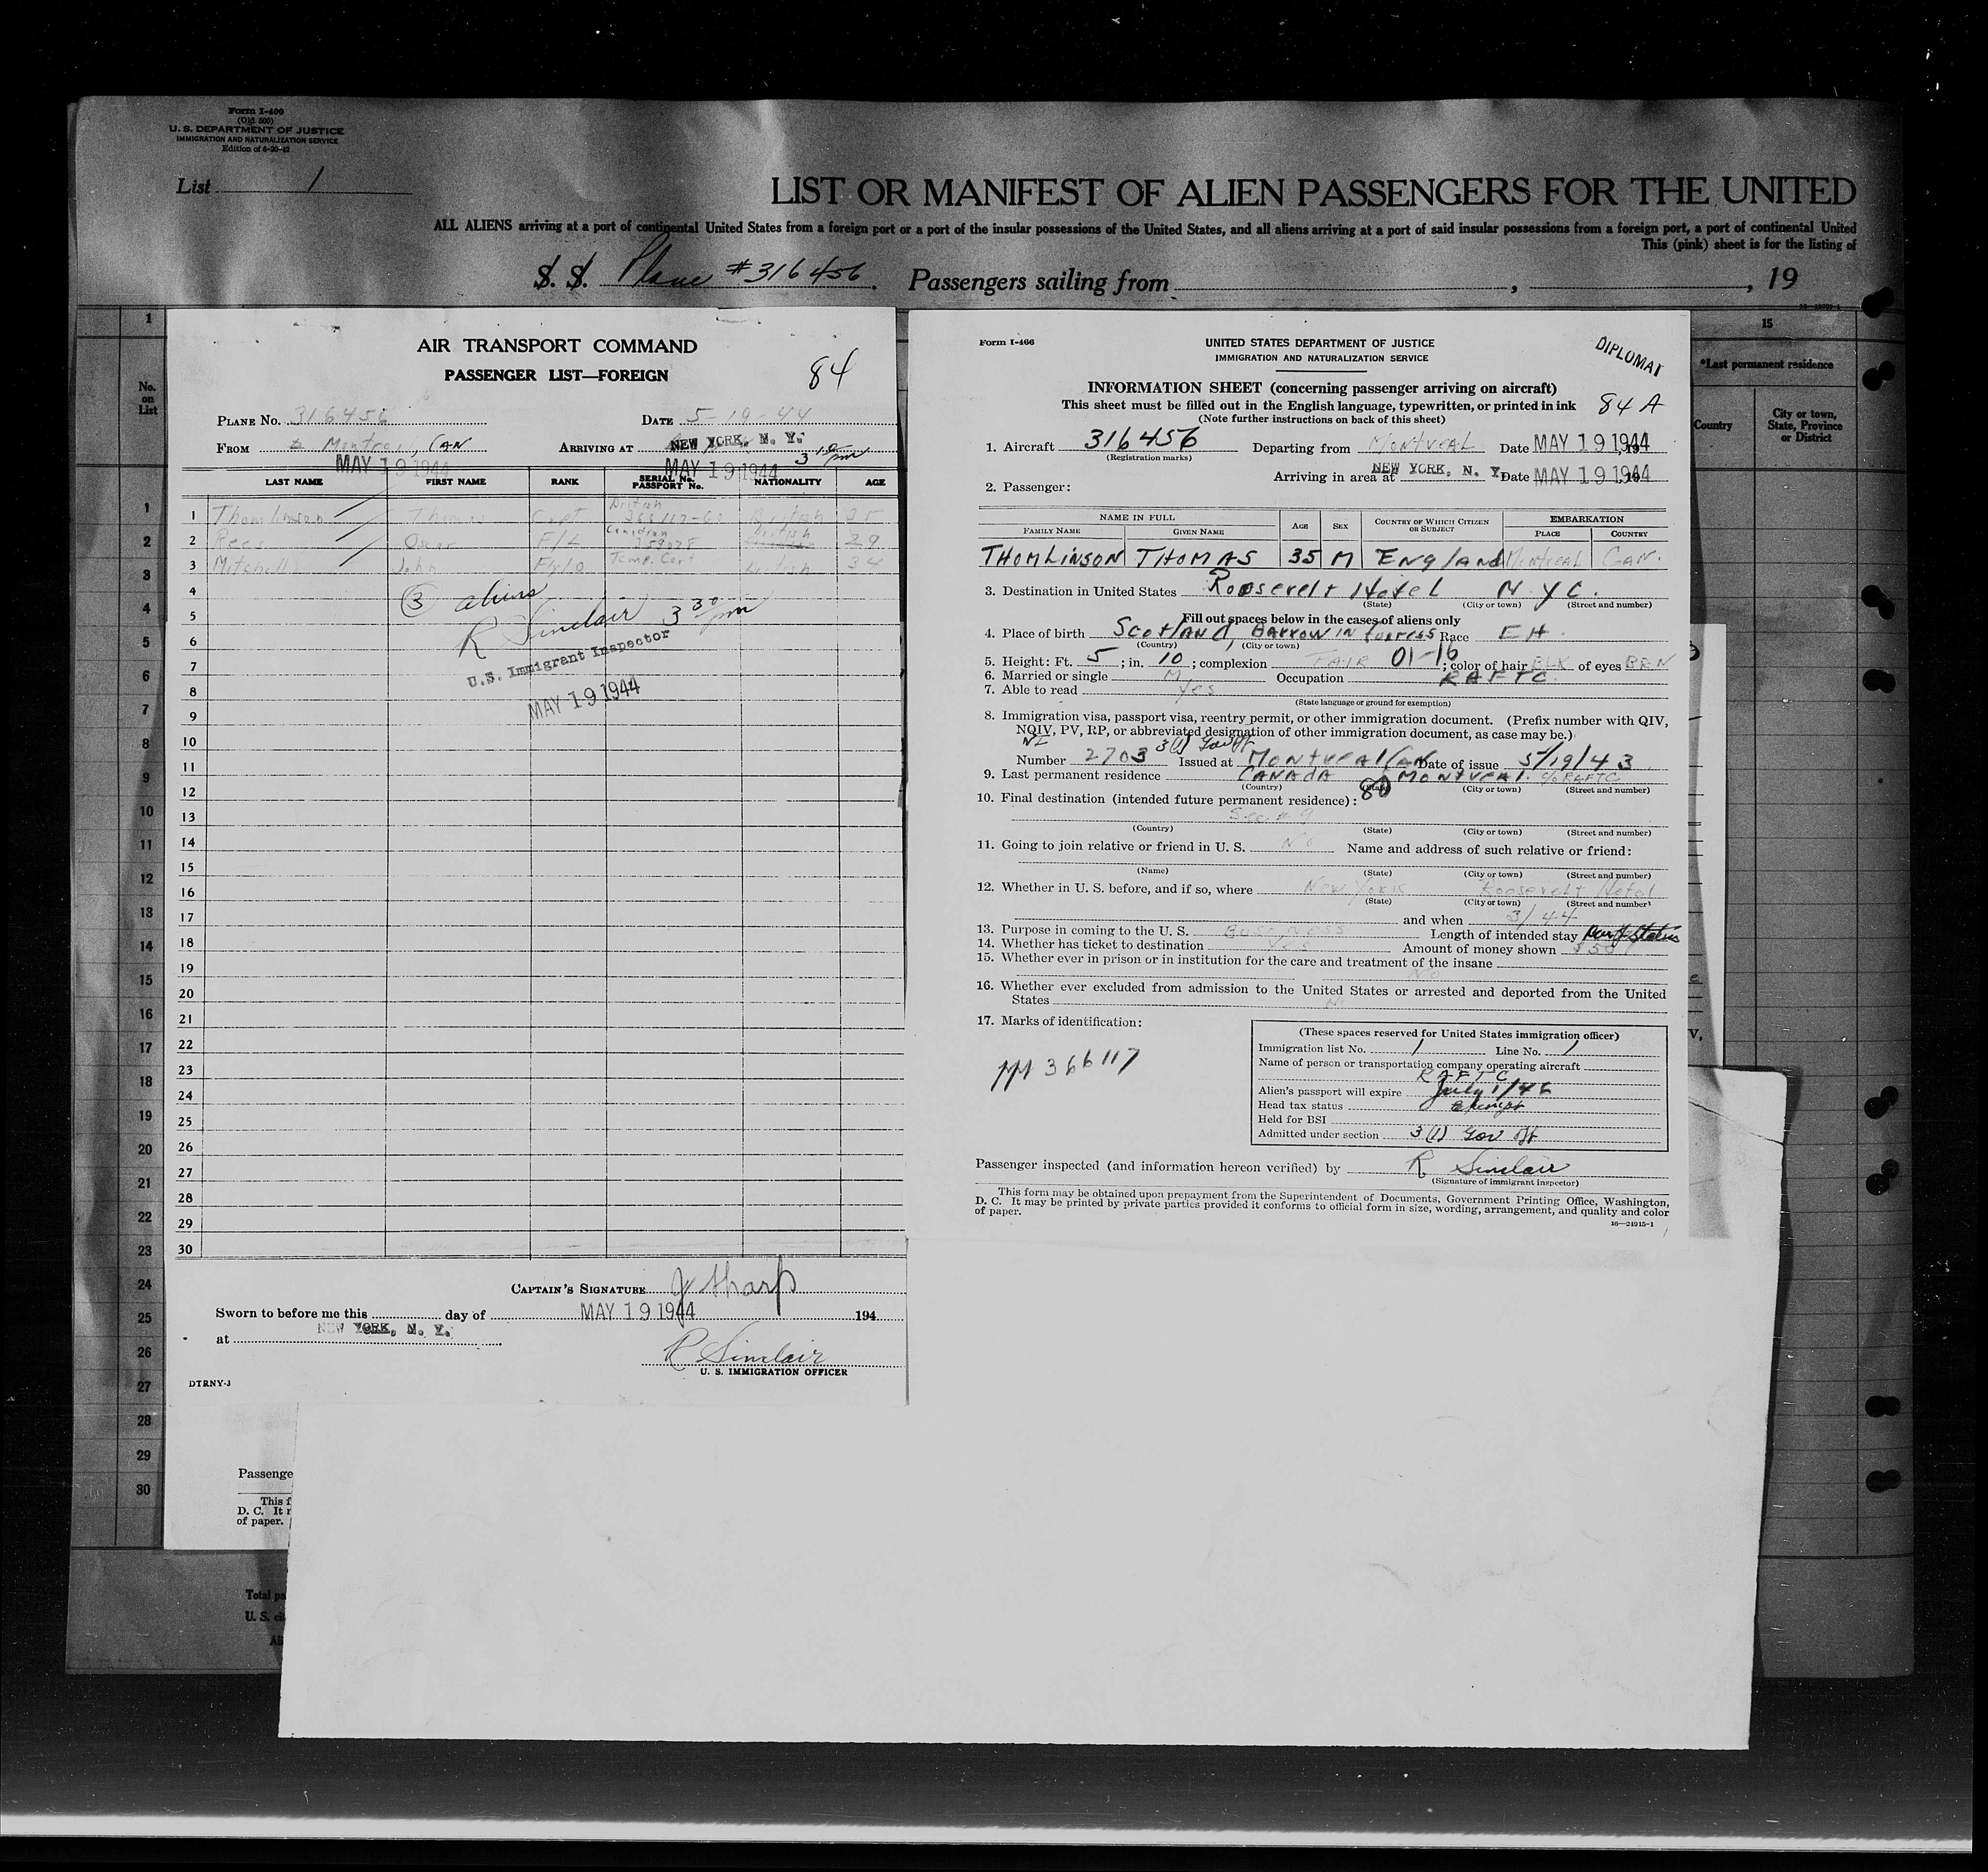 Form I-400
(Old 500)
U. S. DEPARTMENT OF JUSTICE
IMMIGRATION AND NATURALIZATION SERVICE
Edition of 6-20-42
List 1
LIST OR MANIFEST OF ALIEN PASSENGERS FOR THE UNITED
ALL ALIENS arriving at a port of continental United States from a foreign port or a port of the insular possessions of the United States, and all aliens arriving at a port of said insular possessions from a foreign port, a port of continental United
This (pink) sheet is for the listing of
S. S. Plane #316456. Passengers sailing from , , 19
No. on List
1
2
3
4
5
6
7
8
9
10
11
12
13
14
15
16
17
18
19
20
21
22
23
24
25
26
27
28
29
30
15
*Last permanent residence
Country
City or town, State, Province or District
AIR TRANSPORT COMMAND
PASSENGER LIST—FOREIGN
84
PLANE NO. 316456 DATE 5-19-44
FROM Montreal, CAN ARRIVING AT NEW YORK, N. Y.
MAY 19 1944 MAY 19 1944 3 10 pm
LAST NAME FIRST NAME RANK SERIAL No. PASSPORT No. NATIONALITY AGE
1 Thomlinson Thomas Capt British 366117-6 British 35
2 Rees Oscar F/L Canadian British 29
3 Mitchell John Temp. Cert British 34
4
5
6
7
8
9
10
11
12
13
14
15
16
17
18
19
20
21
22
23
24
25
26
27
28
29
30
(3) aliens
R Sinclair 3 30 pm
U.S. Immigrant Inspector
MAY 19 1944
CAPTAIN'S SIGNATURE J Sharp
Sworn to before me this day of MAY 19 1944 194
at NEW YORK, N. Y.
R Sinclair
U. S. IMMIGRATION OFFICER
DTRNY-3
Passenge
This f
D. C. It r
of paper.
Total pa
U. S. ci
Form I-466
UNITED STATES DEPARTMENT OF JUSTICE
IMMIGRATION AND NATURALIZATION SERVICE
DIPLOMAT
INFORMATION SHEET (concerning passenger arriving on aircraft)
This sheet must be filled out in the English language, typewritten, or printed in ink
84 A
(Note further instructions on back of this sheet)
1. Aircraft 316456 Departing from Montreal Date MAY 19 1944, 19
(Registration marks)
Arriving in area at NEW YORK, N. Y. Date MAY 19 1944
2. Passenger:
NAME IN FULL AGE SEX COUNTRY OF WHICH CITIZEN OR SUBJECT EMBARKATION
FAMILY NAME GIVEN NAME PLACE COUNTRY
THOMLINSON THOMAS 35 M ENGLAND Montreal CAN.
3. Destination in United States Roosevelt Hotel N Y C.
(State) (City or town) (Street and number)
Fill out spaces below in the cases of aliens only
4. Place of birth Scotland, Barrow in Furness Race EH
(Country) (City or town)
5. Height: Ft. 5; in. 10; complexion FAIR 01-16; color of hair BLK of eyes BRN
6. Married or single M Occupation RAFTC
7. Able to read Yes
(State language or ground for exemption)
8. Immigration visa, passport visa, reentry permit, or other immigration document. (Prefix number with QIV,
NQIV, PV, RP, or abbreviated designation of other immigration document, as case may be.)
3(1) Gov't
Number 2703 Issued at Montreal Can Date of issue 5/19/43
9. Last permanent residence CANADA MONTREAL c/o RAFTC
(Country) (State) (City or town) (Street and number)
80
10. Final destination (intended future permanent residence):
See # 9
(Country) (State) (City or town) (Street and number)
11. Going to join relative or friend in U. S. No Name and address of such relative or friend:
(Name) (State) (City or town) (Street and number)
12. Whether in U. S. before, and if so, where New York Roosevelt Hotel
(State) (City or town) (Street and number)
and when 3/44
13. Purpose in coming to the U. S. Business Length of intended stay
14. Whether has ticket to destination Yes Amount of money shown $50
15. Whether ever in prison or in institution for the care and treatment of the insane
No
16. Whether ever excluded from admission to the United States or arrested and deported from the United
States
17. Marks of identification:
366117
(These spaces reserved for United States immigration officer)
Immigration list No. 1 Line No. 1
Name of person or transportation company operating aircraft
RAFTC
Alien's passport will expire July 1/46
Head tax status Exempt
Held for BSI
Admitted under section 3(1) Gov Off
Passenger inspected (and information hereon verified) by R Sinclair
(Signature of immigrant inspector)
This form may be obtained upon prepayment from the Superintendent of Documents, Government Printing Office, Washington,
D. C. It may be printed by private parties provided it conforms to official form in size, wording, arrangement, and quality and color
of paper.
16—24915-1